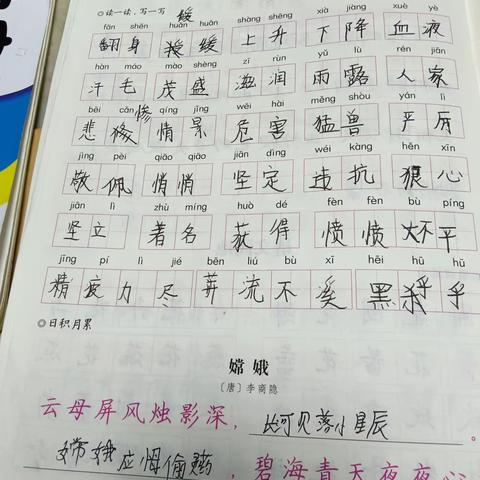 ◎读一读,写一写 缓
fān shēn huǎn huǎn shàng shēng xià jiàng xuè yè
翻身 缓 上升 下降 血液
hàn máo mào shèng zī rùn yǔ lù rén jiān
汗毛 茂盛 滋润 雨露 人家
bēi cǎn qíng jǐng wēi hài měng shòu yán lì
悲 惨 情景 危害 猛兽 严厉
jìng pèi qiǎo qiǎo jiān dìng wéi kàng hěn xīn
敬佩 悄悄 坚定 违抗 狠心
jiān lì zhù míng huò dé fèn fèn bù píng
坚立 著名 获得 愤愤 不平
jīng pí lì jié bēn liú bù xī hēi hū hū
精疲力尽 奔流不 黑乎乎
◎日积月累
嫦娥
〔唐〕李商隐
云母屏风烛影深, 河见落小星辰。
嫦娥应悔偷药, 碧海青天夜夜心